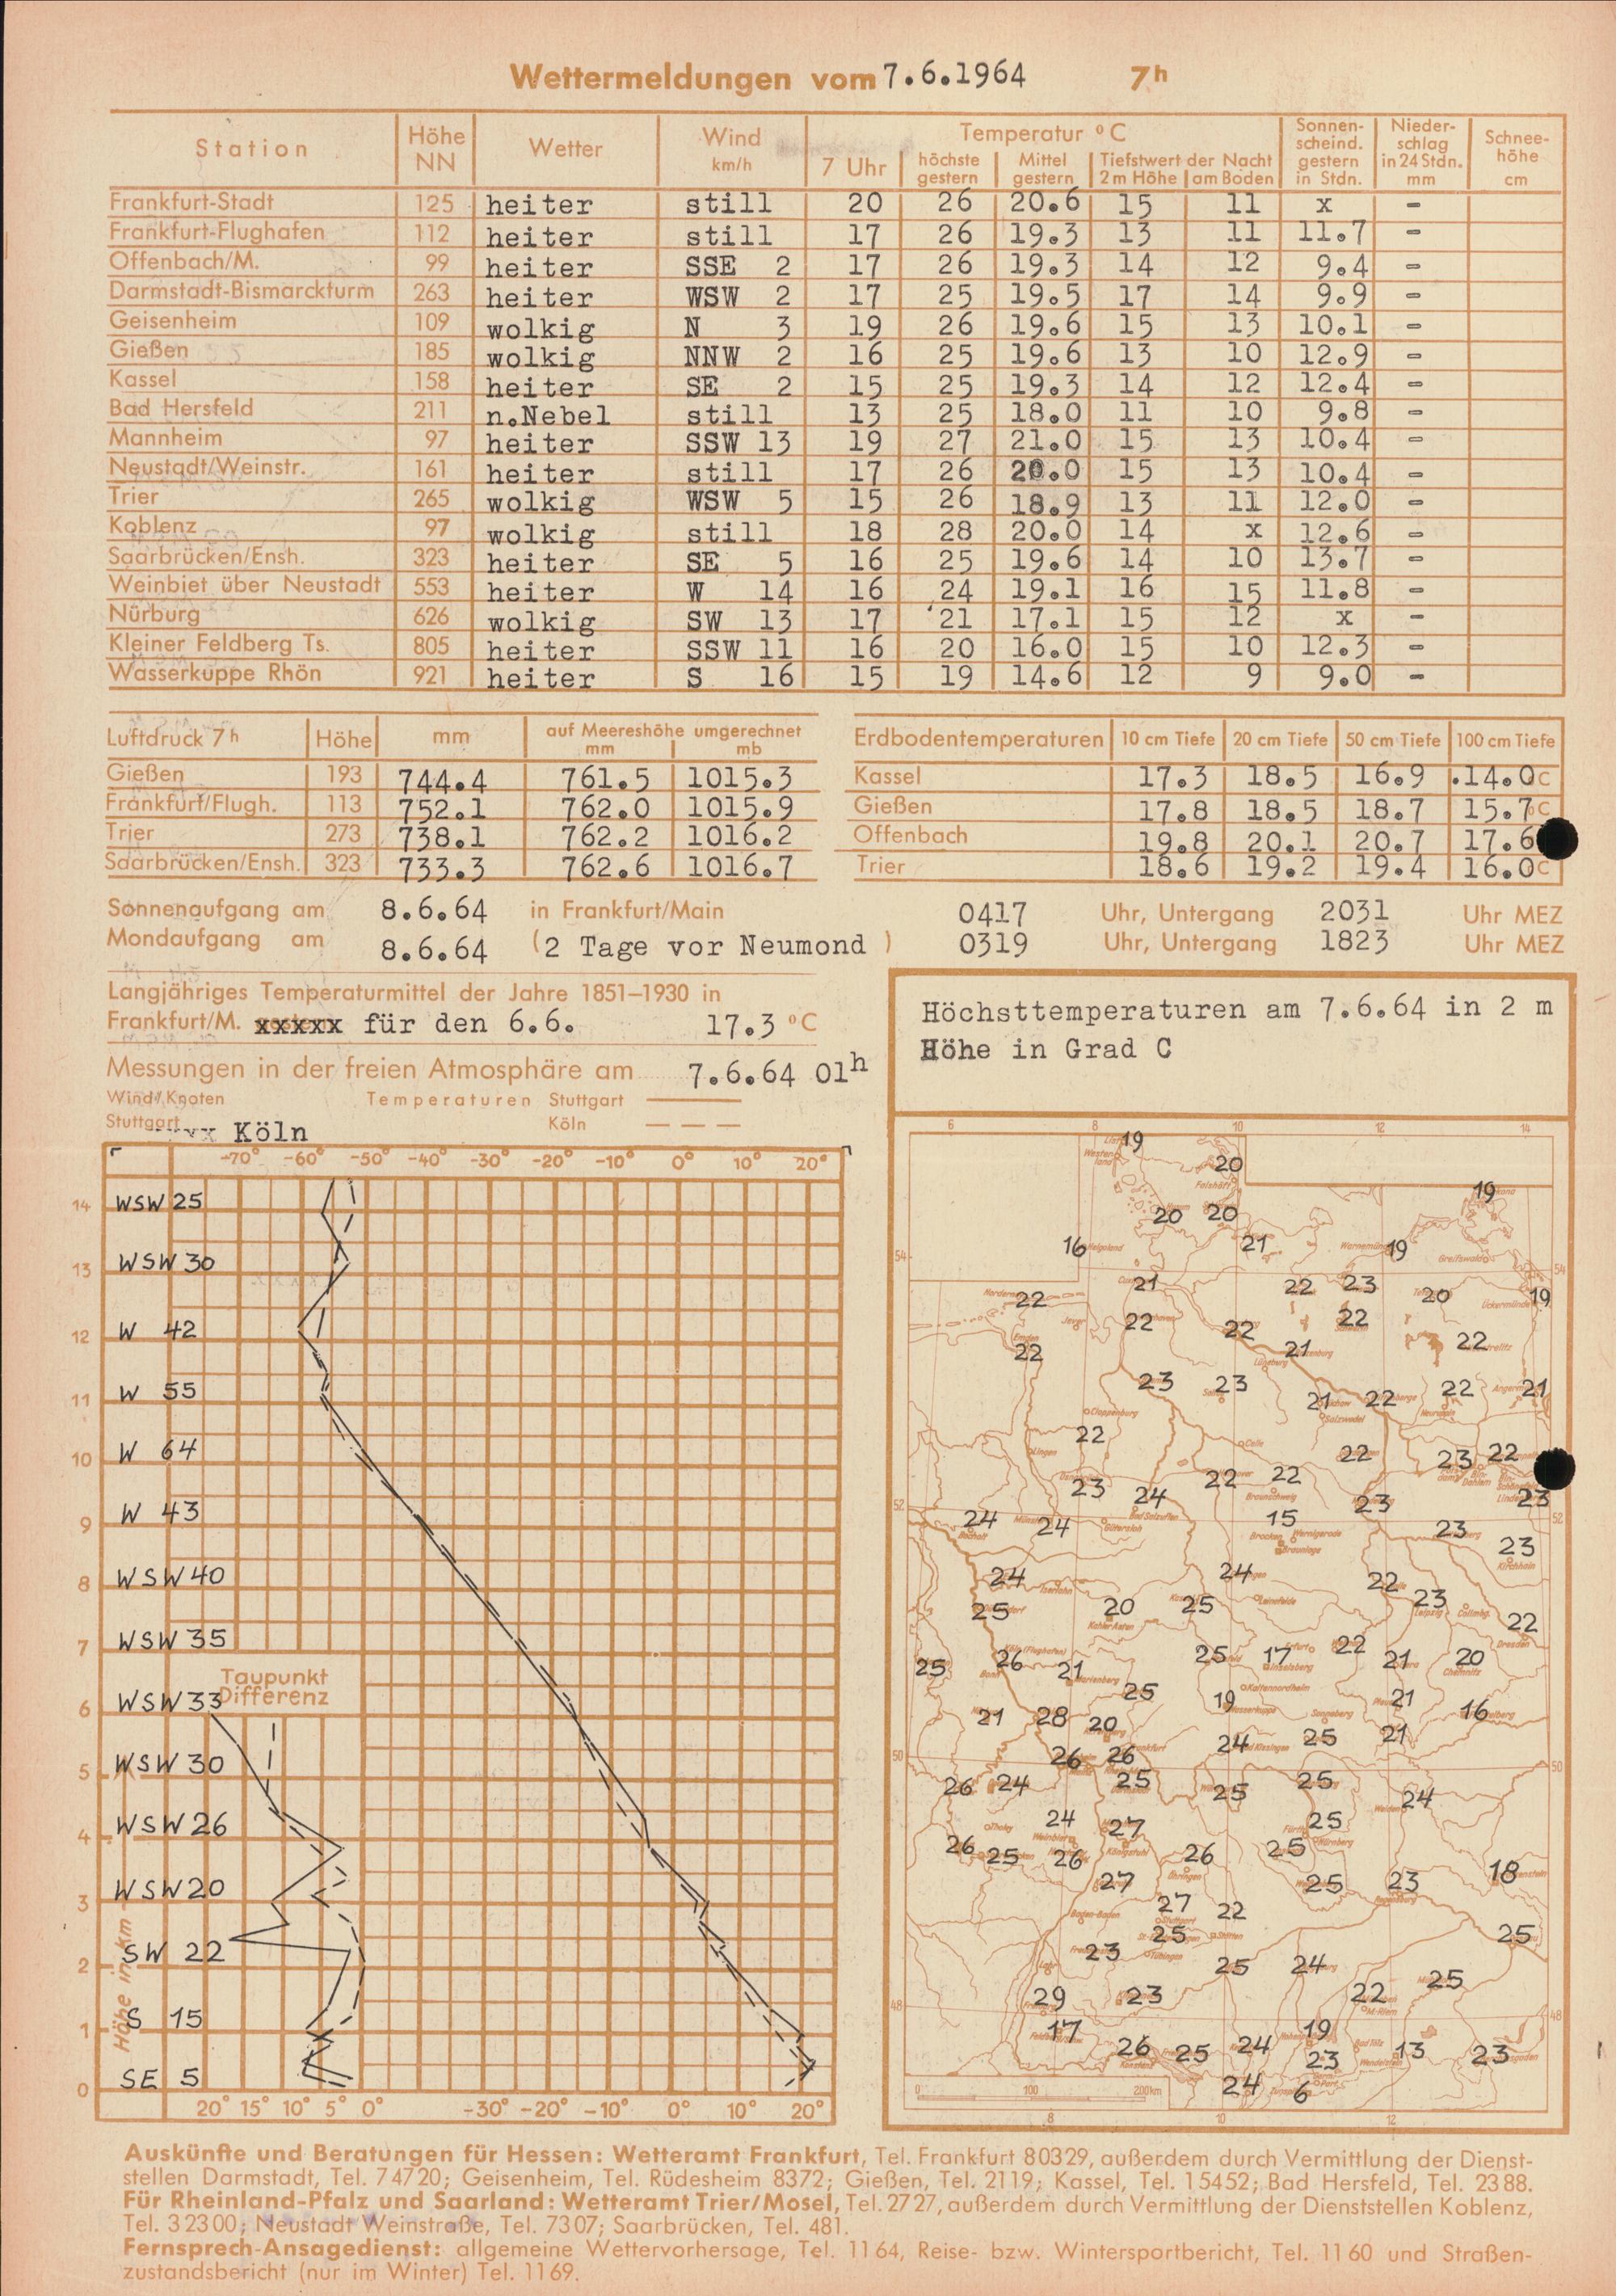 Wettermeldungen vom 7.6.1964 7h
Station Höhe NN Wetter Wind km/h Temperatur °C 7 Uhr höchste gestern Mittel gestern Tiefstwert der Nacht 2m Höhe am Boden Sonnen-scheind. gestern in Stdn. Nieder-schlag in 24 Stdn. mm Schnee-höhe cm
Frankfurt-Stadt 125 heiter still 20 26 20.6 15 11 x -
Frankfurt-Flughafen 112 heiter still 17 26 19.3 13 11 11.7 -
Offenbach/M. 99 heiter SSE 2 17 26 19.3 14 12 9.4 -
Darmstadt-Bismarckturm 263 heiter WSW 2 17 25 19.5 17 14 9.9 -
Geisenheim 109 wolkig N 3 19 26 19.6 15 13 10.1 -
Gießen 185 wolkig NNW 2 16 25 19.6 13 10 12.9 -
Kassel 158 heiter SE 2 15 25 19.3 14 12 12.4 -
Bad Hersfeld 211 n.Nebel still 13 25 18.0 11 10 9.8 -
Mannheim 97 heiter SSW 13 19 27 21.0 15 13 10.4 -
Neustadt/Weinstr. 161 heiter still 17 26 20.0 15 13 10.4 -
Trier 265 wolkig WSW 5 15 26 18.9 13 11 12.0 -
Koblenz 97 wolkig still 18 28 20.0 14 x 12.6 -
Saarbrücken/Ensh. 323 heiter SE 5 16 25 19.6 14 10 13.7 -
Weinbiet über Neustadt 553 heiter W 14 16 24 19.1 16 15 11.8 -
Nürburg 626 wolkig SW 13 17 21 17.1 15 12 x -
Kleiner Feldberg Ts. 805 heiter SSW 11 16 20 16.0 15 10 12.3 -
Wasserkuppe Rhön 921 heiter S 16 15 19 14.6 12 9 9.0 -
Luftdruck 7h Höhe mm auf Meereshöhe umgerechnet mm mb
Gießen 193 744.4 761.5 1015.3
Frankfurt/Flugh. 113 752.1 762.0 1015.9
Trier 273 738.1 762.2 1016.2
Saarbrücken/Ensh. 323 733.3 762.6 1016.7
Erdbodentemperaturen 10 cm Tiefe 20 cm Tiefe 50 cm Tiefe 100 cm Tiefe
Kassel 17.3 18.5 16.9 .14.0 C
Gießen 17.8 18.5 18.7 15.7 °C
Offenbach 19.8 20.1 20.7 17.6
Trier 18.6 19.2 19.4 16.0 C
Sonnenaufgang am 8.6.64 in Frankfurt/Main 0417 Uhr, Untergang 2031 Uhr MEZ
Mondaufgang am 8.6.64 (2 Tage vor Neumond ) 0319 Uhr, Untergang 1823 Uhr MEZ
Langjähriges Temperaturmittel der Jahre 1851–1930 in
Frankfurt/M. xxxxx für den 6.6. 17.3 °C
Messungen in der freien Atmosphäre am 7.6.64 01h
Wind/Knoten Temperaturen Stuttgart
Stuttgart Köln Köln
-70° -60° -50° -40° -30° -20° -10° 0° 10° 20°
14 WSW 25
13 WSW 30
12 W 42
11 W 55
10 W 64
9 W 43
8 WSW 40
7 WSW 35
Taupunkt
6 WSW 33 Differenz
5 WSW 30
4 WSW 26
3 WSW 20
2 SW 22
1 S 15
0 SE 5
Höhe in km
20° 15° 10° 5° 0° -30° -20° -10° 0° 10° 20°
Höchsttemperaturen am 7.6.64 in 2 m
Höhe in Grad C
6 8 10 12 14
19
20
19
20 20
16 21 19
54 54
21 22 23 20 19
22
22 22 22
22 21 22
23 23 21 22 22 21
22 22 23 22
23 24 22 22 23 23
52 52
24 24 15 23 23
24 24 22 23
25 20 25 22
25 26 21 25 17 22 21 20
25 19 21 16
21 28 20 24 25 21
50 50
26 26
26 24 25 25 25 24
24 27 25
26 25 26 26 25
27 25 23 18
27 22
25 25
23 25 24 25
29 23 22
48 48
17 26 25 24 19 23 13 23
24 6
0 100 200km
8 10 12
Auskünfte und Beratungen für Hessen: Wetteramt Frankfurt, Tel. Frankfurt 80329, außerdem durch Vermittlung der Dienst-
stellen Darmstadt, Tel. 74720; Geisenheim, Tel. Rüdesheim 8372; Gießen, Tel. 2119; Kassel, Tel. 15452; Bad Hersfeld, Tel. 2388.
Für Rheinland-Pfalz und Saarland: Wetteramt Trier/Mosel, Tel. 2727, außerdem durch Vermittlung der Dienststellen Koblenz,
Tel. 32300; Neustadt Weinstraße, Tel. 7307; Saarbrücken, Tel. 481.
Fernsprech-Ansagedienst: allgemeine Wettervorhersage, Tel. 1164, Reise- bzw. Wintersportbericht, Tel. 1160 und Straßen-
zustandsbericht (nur im Winter) Tel. 1169.